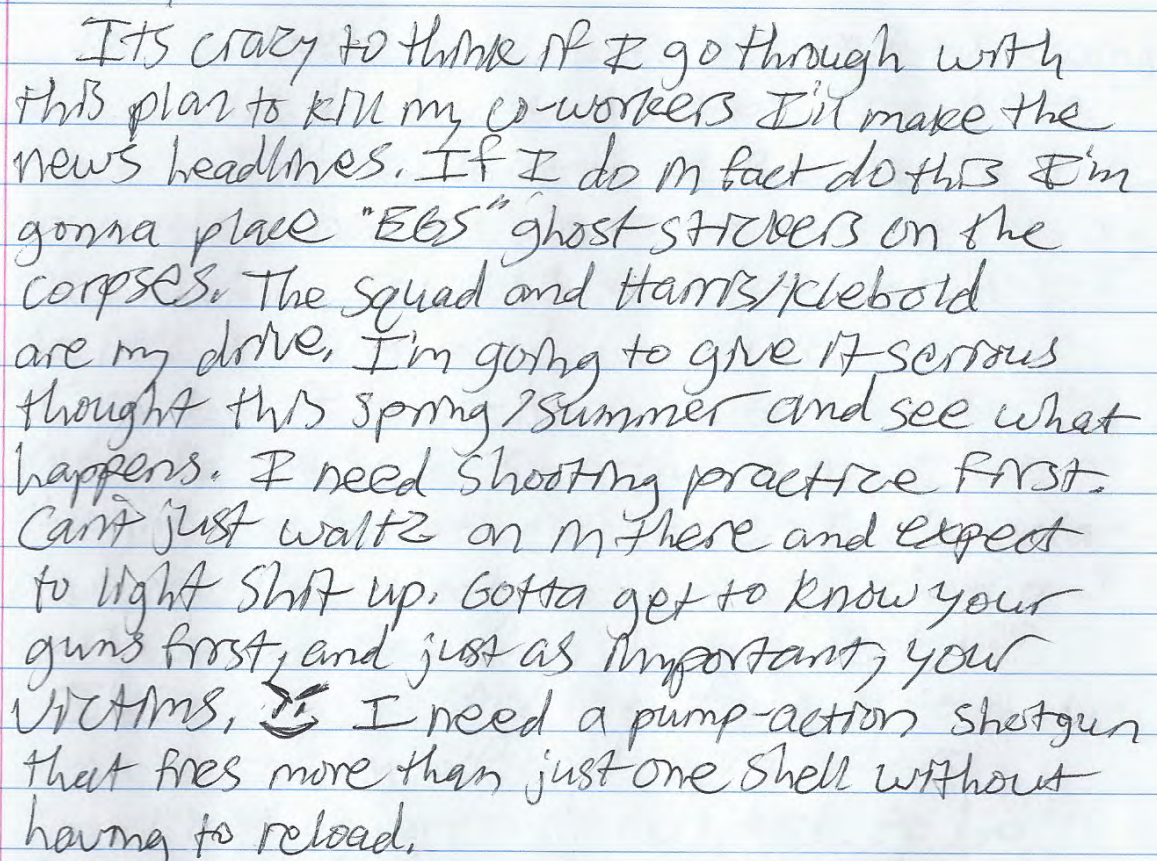 Its crazy to think if I go through with
this plan to kill my co-workers I'll make the
news headlines. If I do in fact do this I'm
gonna place "EGS" ghost stickers on the
corpses. The squad and Harris/Klebold
are my drive. I'm going to give it serious
thought this spring/summer and see what
happens. I need shooting practice first.
Can't just waltz on in there and expect
to light shit up. Gotta get to know your
guns first, and just as important, your
victims. I need a pump-action shotgun
that fires more than just one shell without
having to reload.